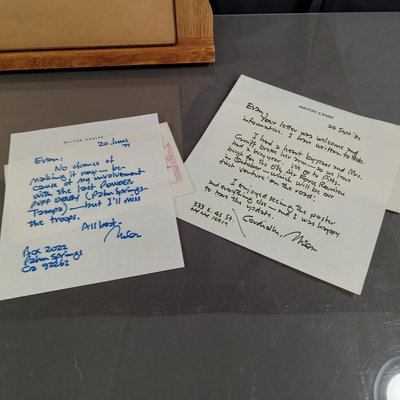 MILTON CANIFF
20 June
77
Evan:
No chance of
making it now — be-
cause of my involvement
with the last POWDER
PUFF DERBY (Palm Springs-
Tampa) — but I'll miss
the troops.
All best,
Milton
Box 2022
Palm Springs
Ca 92262
MILTON CANIFF
Evan:
Your letter was welcome and
informative. I have written to Bob.
I had a heart bypass and Mrs.
Caniff broke her
had a
for the
in October — which will be our
first venture on the road!
I enjoyed seeing the poster
and everything else — and I was happy
to have the update.
Cordially,
Milton
333 E. 45 St.
NY NY 10017